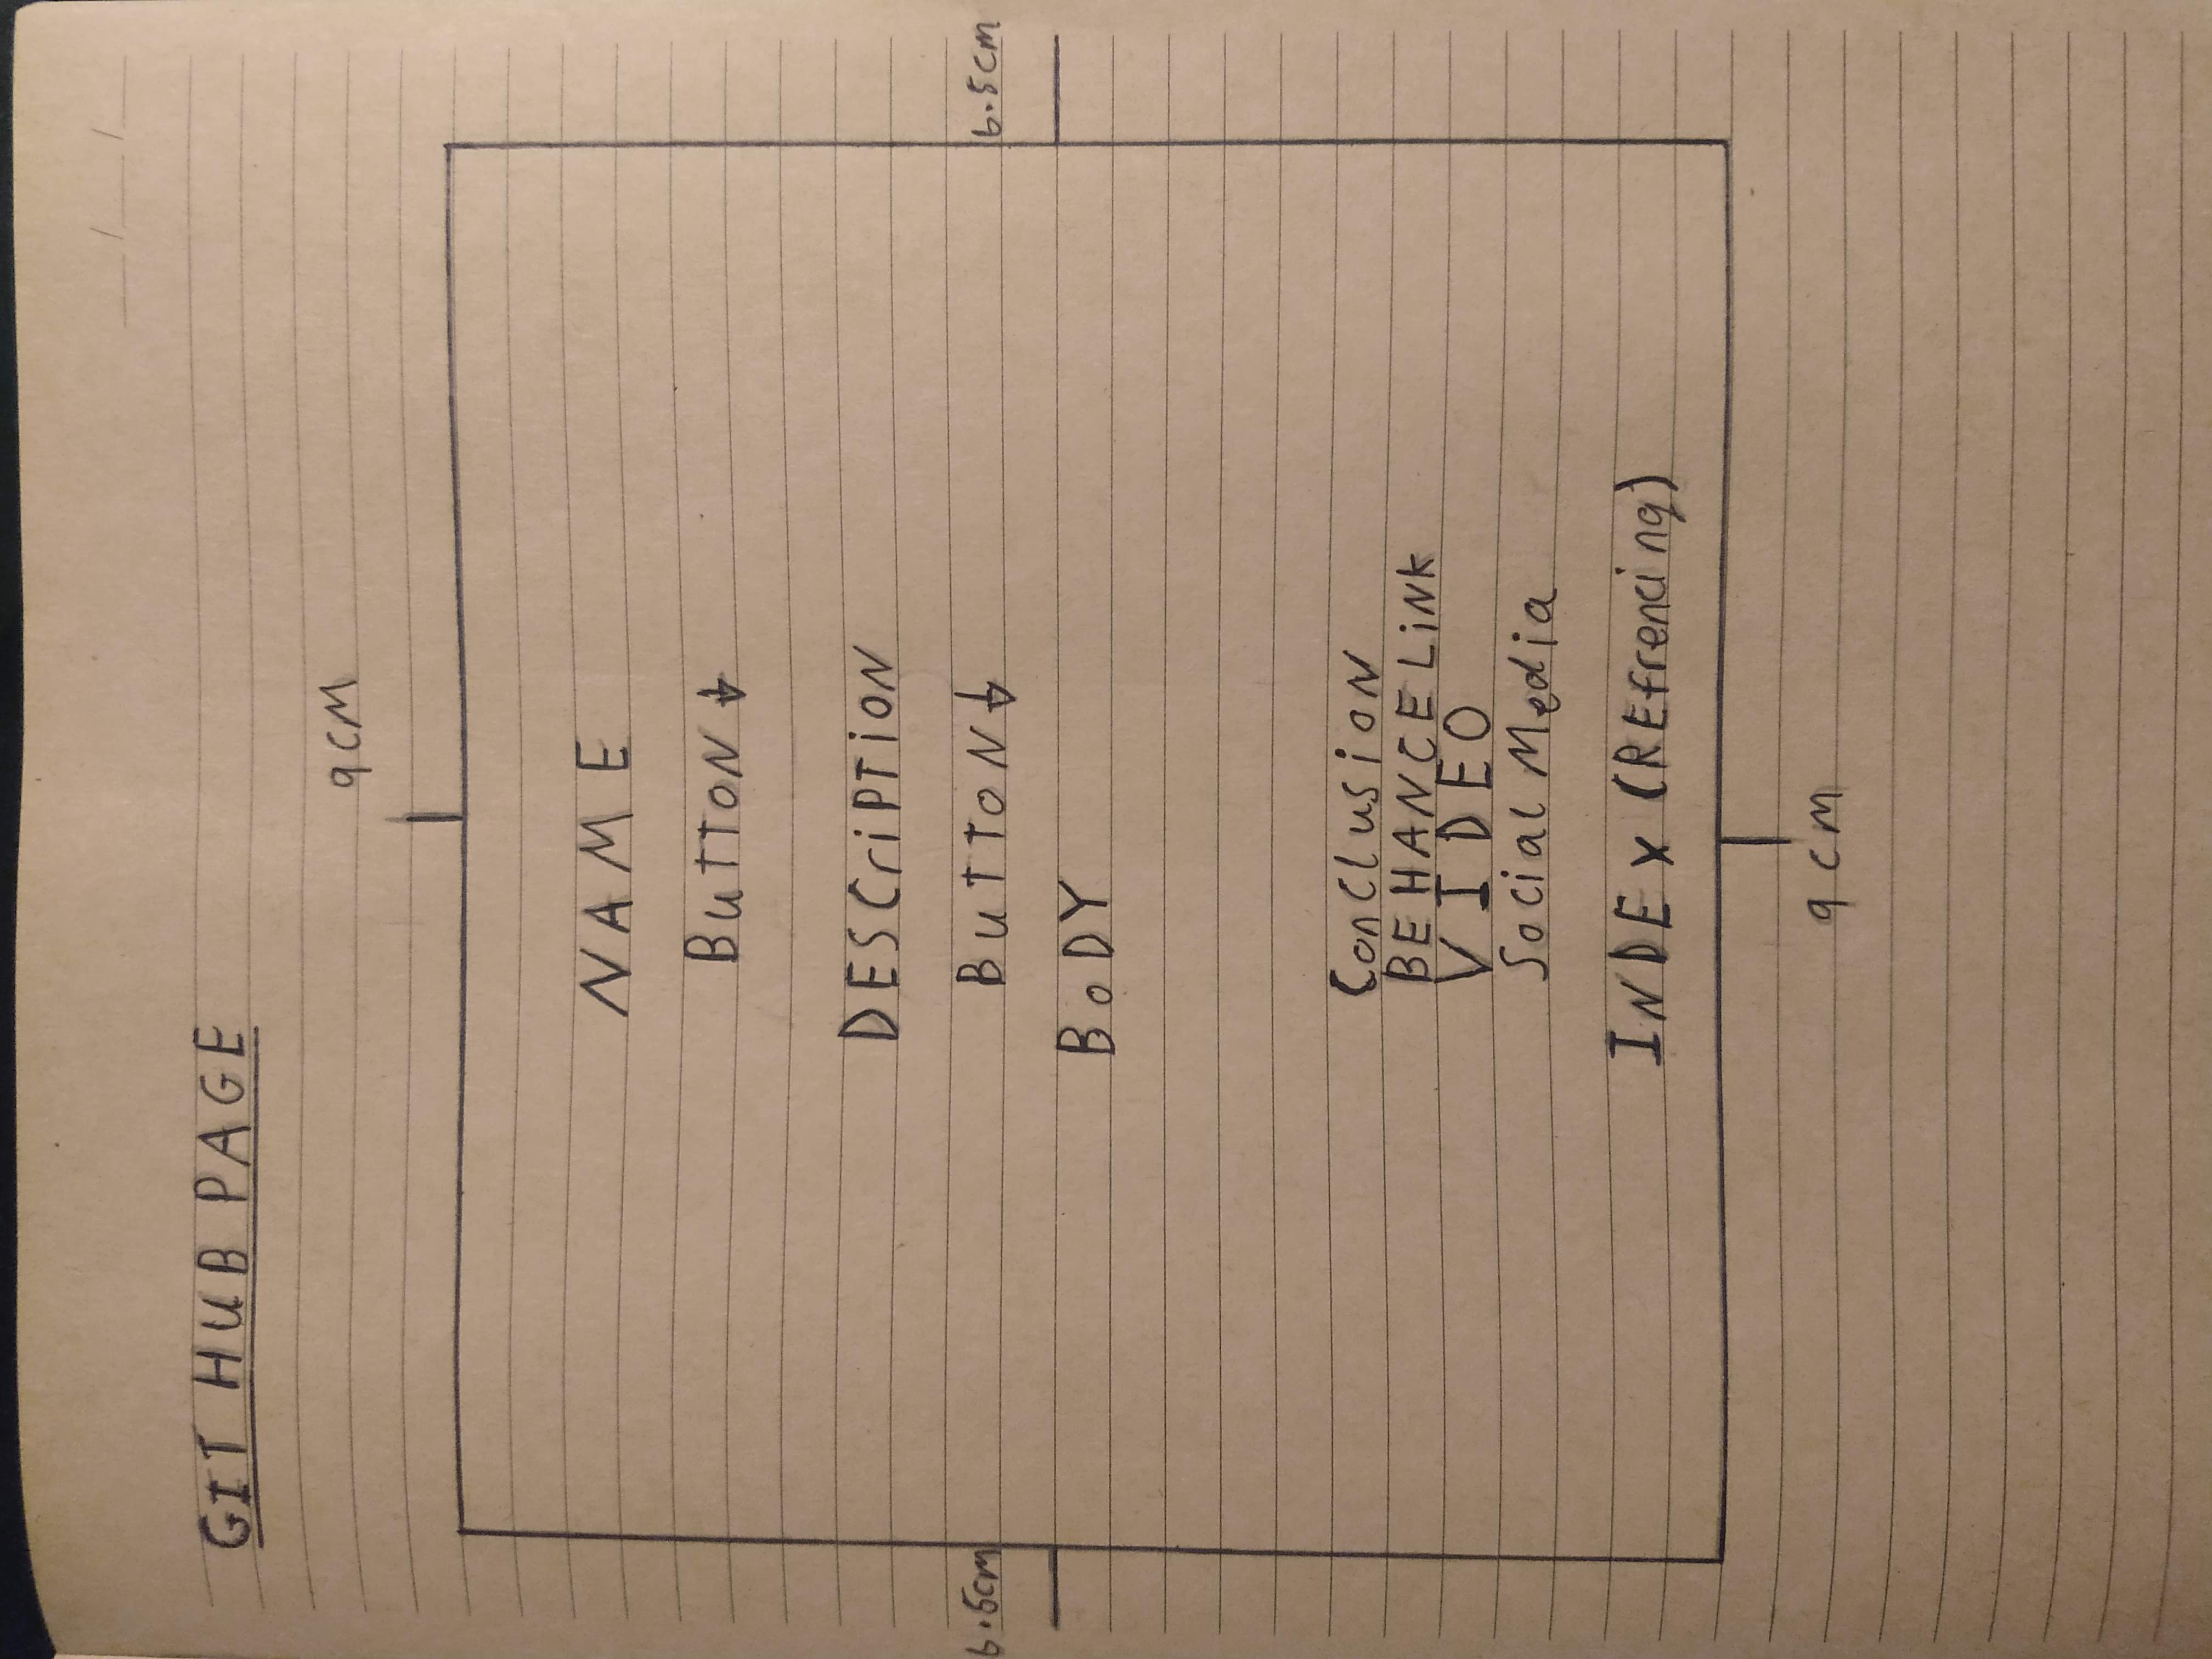 GIT HUB PAGE
9CM
NAME
BUTTON ↓
DESCriPTiON
6.5cm
BUTTON ↓
6.5cm
BODY
Conclusion
BEHANCE LiNK
VIDEO
Social Media
INDEX (REfrencing)
9cm